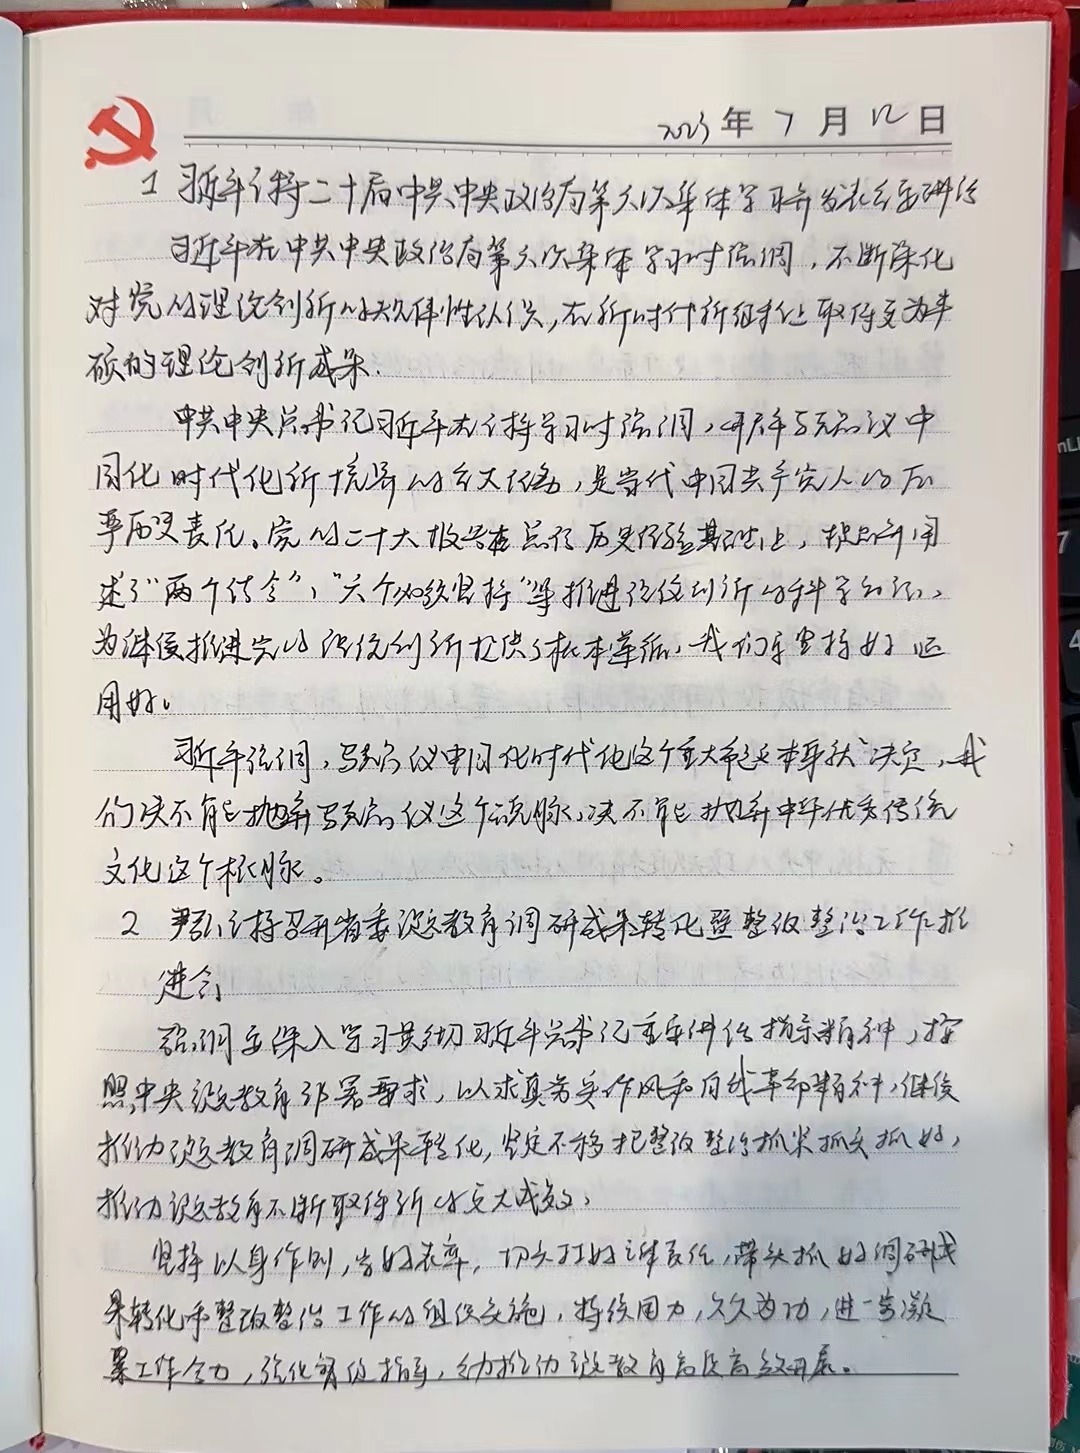 2023年7月12日
1 习近平主持二十届中共中央政治局第六次集体学习并发表重要讲话
习近平在中共中央政治局第六次集体学习时强调，不断深化
对党的理论创新的规律性认识，在新时代新征程上取得更为丰
硕的理论创新成果.
中共中央总书记习近平在主持学习时强调，开辟马克思主义中
国化时代化新境界的重大任务，是当代中国共产党人的庄
严历史责任。党的二十大报告在总结历史经验基础上，提出并阐
述了“两个结合”、“六个必须坚持”等推进理论创新的科学方法、
为继续推进党的理论创新提供了根本遵循，我们要坚持好 运
用好。
习近平强调，马克思主义中国化时代化这个重大命题本身就决定，我
们决不能抛弃马克思主义这个魂脉，决不能抛弃中华优秀传统
文化这个根脉。
2 尹弘主持召开省委主题教育调研成果转化暨整改整治工作推
进会
强调要深入学习贯彻习近平总书记重要讲话指示精神，按
照中央主题教育部署要求，以求真务实作风和自我革命精神，继续
推动主题教育调研成果转化，坚定不移把整改整治抓紧抓实抓好，
推动主题教育不断取得新的更大成效，
坚持以身作则，当好表率，切实扛好主体责任，带头抓好调研成
果转化和整改整治工作的组织实施，持续用力，久久为功，进一步凝
聚工作合力，强化督促指导，推动主题教育高质高效开展。